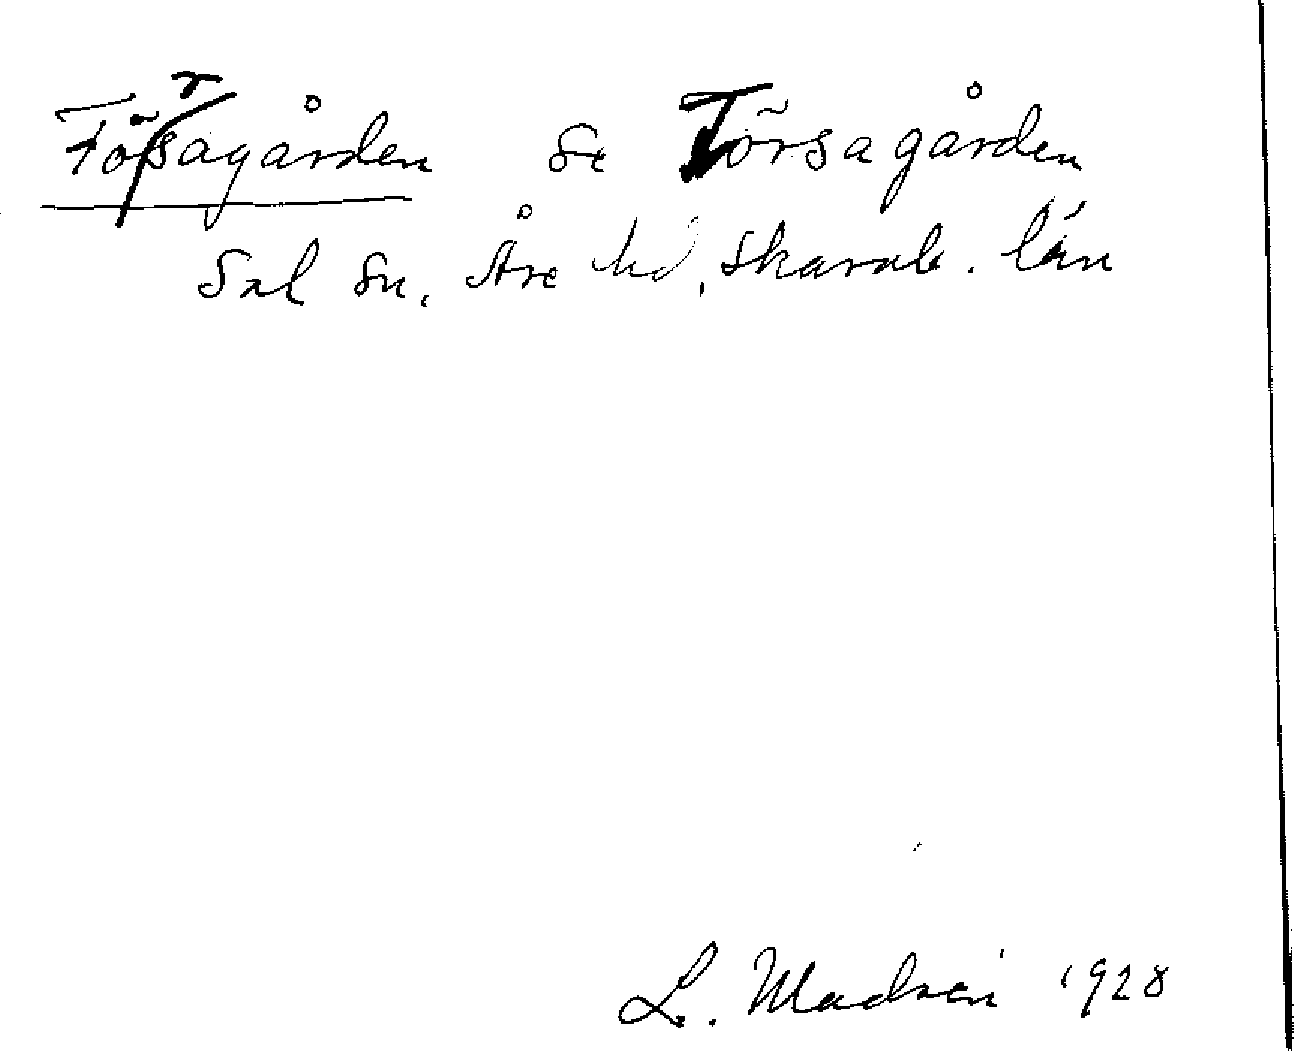 Försagården Se Törsagården
Sal sn. Åse hd, Skarab. län
L. Madsén 1928